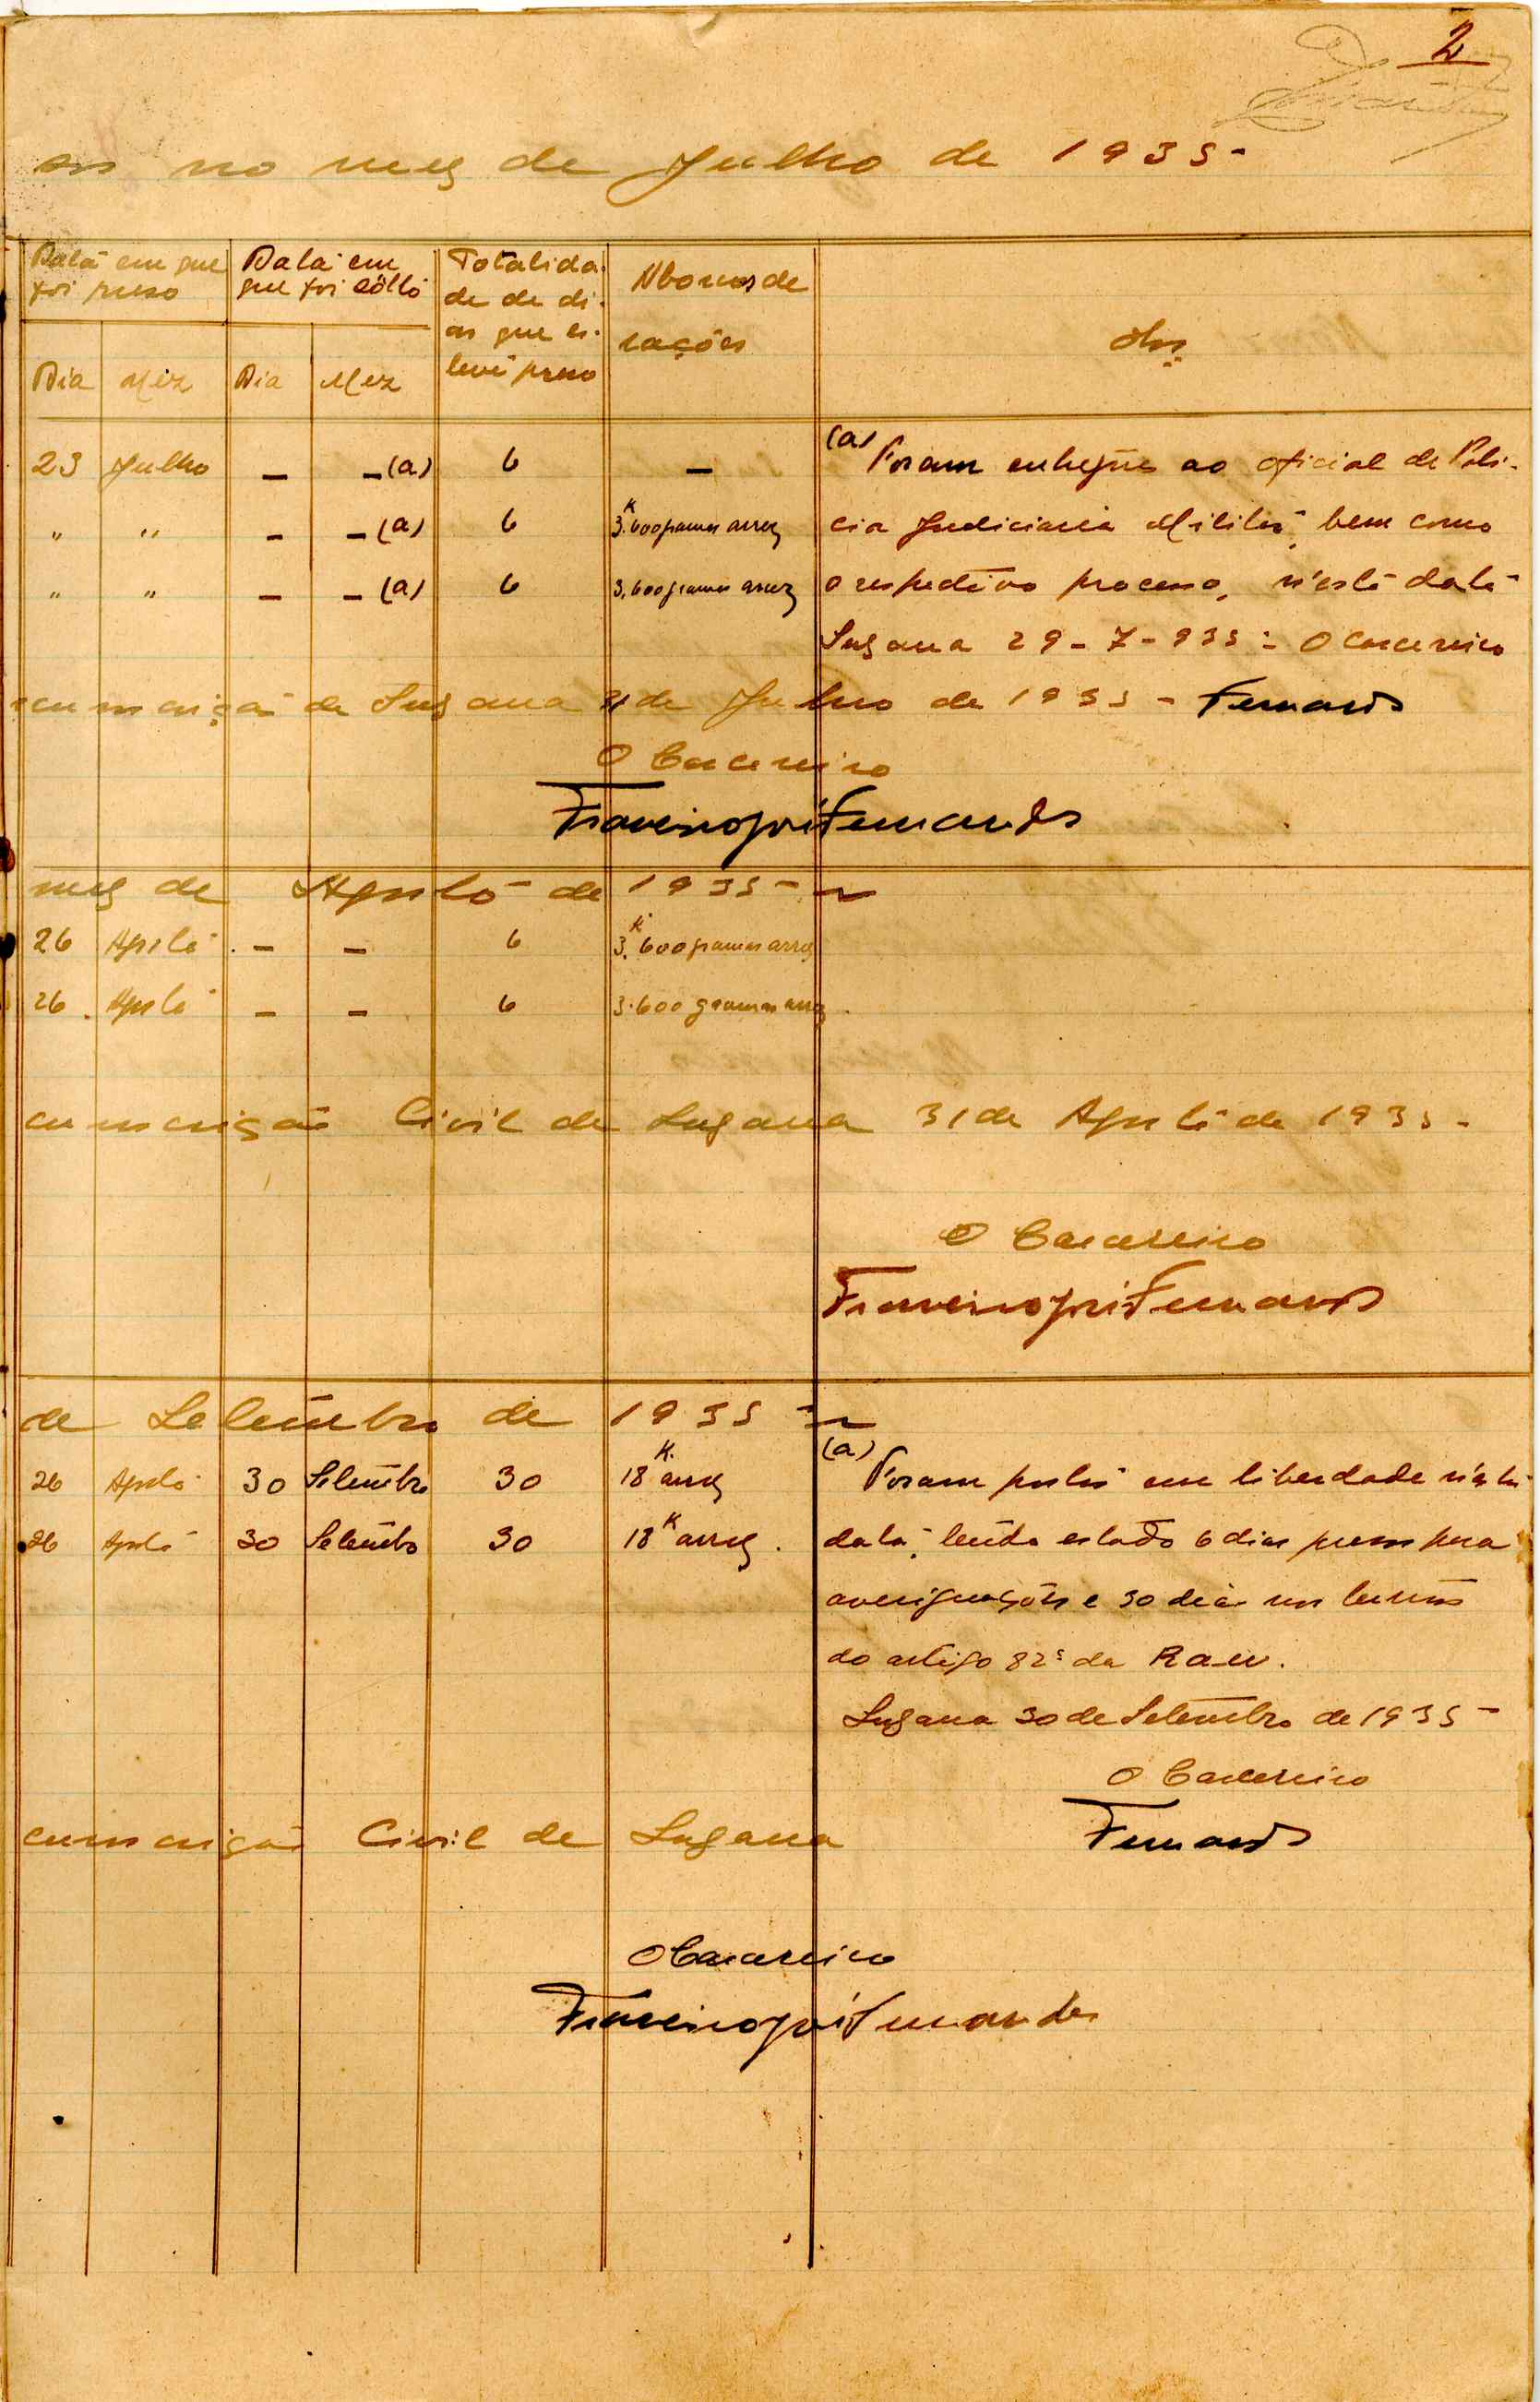 2
os no mez de Julho de 1935-
Data em que foi preso
Data em que foi sôlto
Totalida-
de de di-
as que es-
teve preso
Abonos de
rações
Obs
Dia Mez Dia Mez
23 Julho - -(a) 6 -
" " - -(a) 6 3.K600 gramas arroz
" " - -(a) 6 3.600 gramas arroz
(a) Foram entregues ao oficial de Poli-
cia Judiciaria Militar, bem como
o respectivo processo, n'esta data
Suzana 29-7-935 = O Carcereiro
Fernandes
cunscrição de Suzana 31 de Julho de 1935 -
O Carcereiro
Francisco José Fernandes
mez de Agosto de 1935 -
26 Agosto - - 6 3.K600 gramas arroz
26 Agosto - - 6 3.600 gramas arroz
cunscrição Civil de Suzana 31 de Agosto de 1935 -
O Carcereiro
Francisco José Fernandes
de Setembro de 1935 -
26 Agosto 30 Setembro 30 18K. arroz
26 Agosto 30 Setembro 30 18K arroz.
(a) Foram postos em liberdade n'esta
data, tendo estado 6 dias presos para
averiguações e 30 dias nos termos
do artigo 82º da
Suzana 30 de Setembro de 1935 -
O Carcereiro
Fernandes
cunscrição Civil de Suzana
O Carcereiro
Francisco José Fernandes